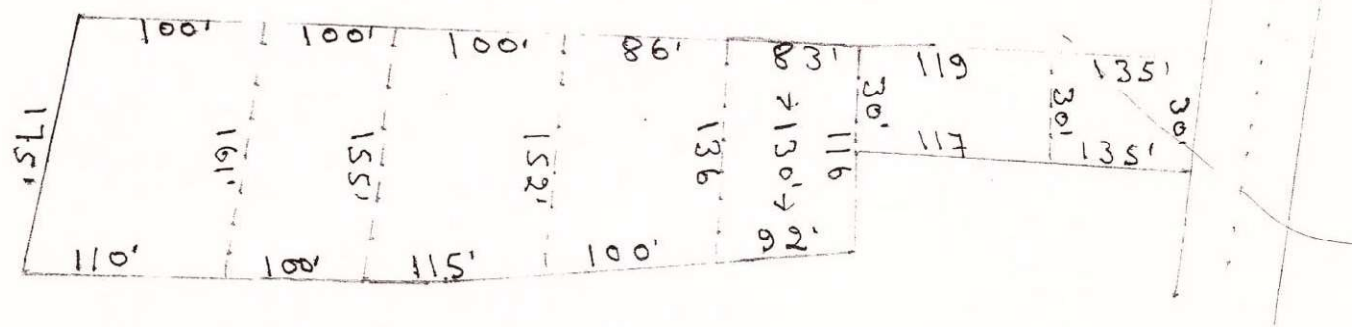 100' 100' 100' 86' 83' 119 135'
175' 161' 155' 152' 136 →130'→ 116 30' 30' 30'
117 135'
110' 100' 115' 100' 92'